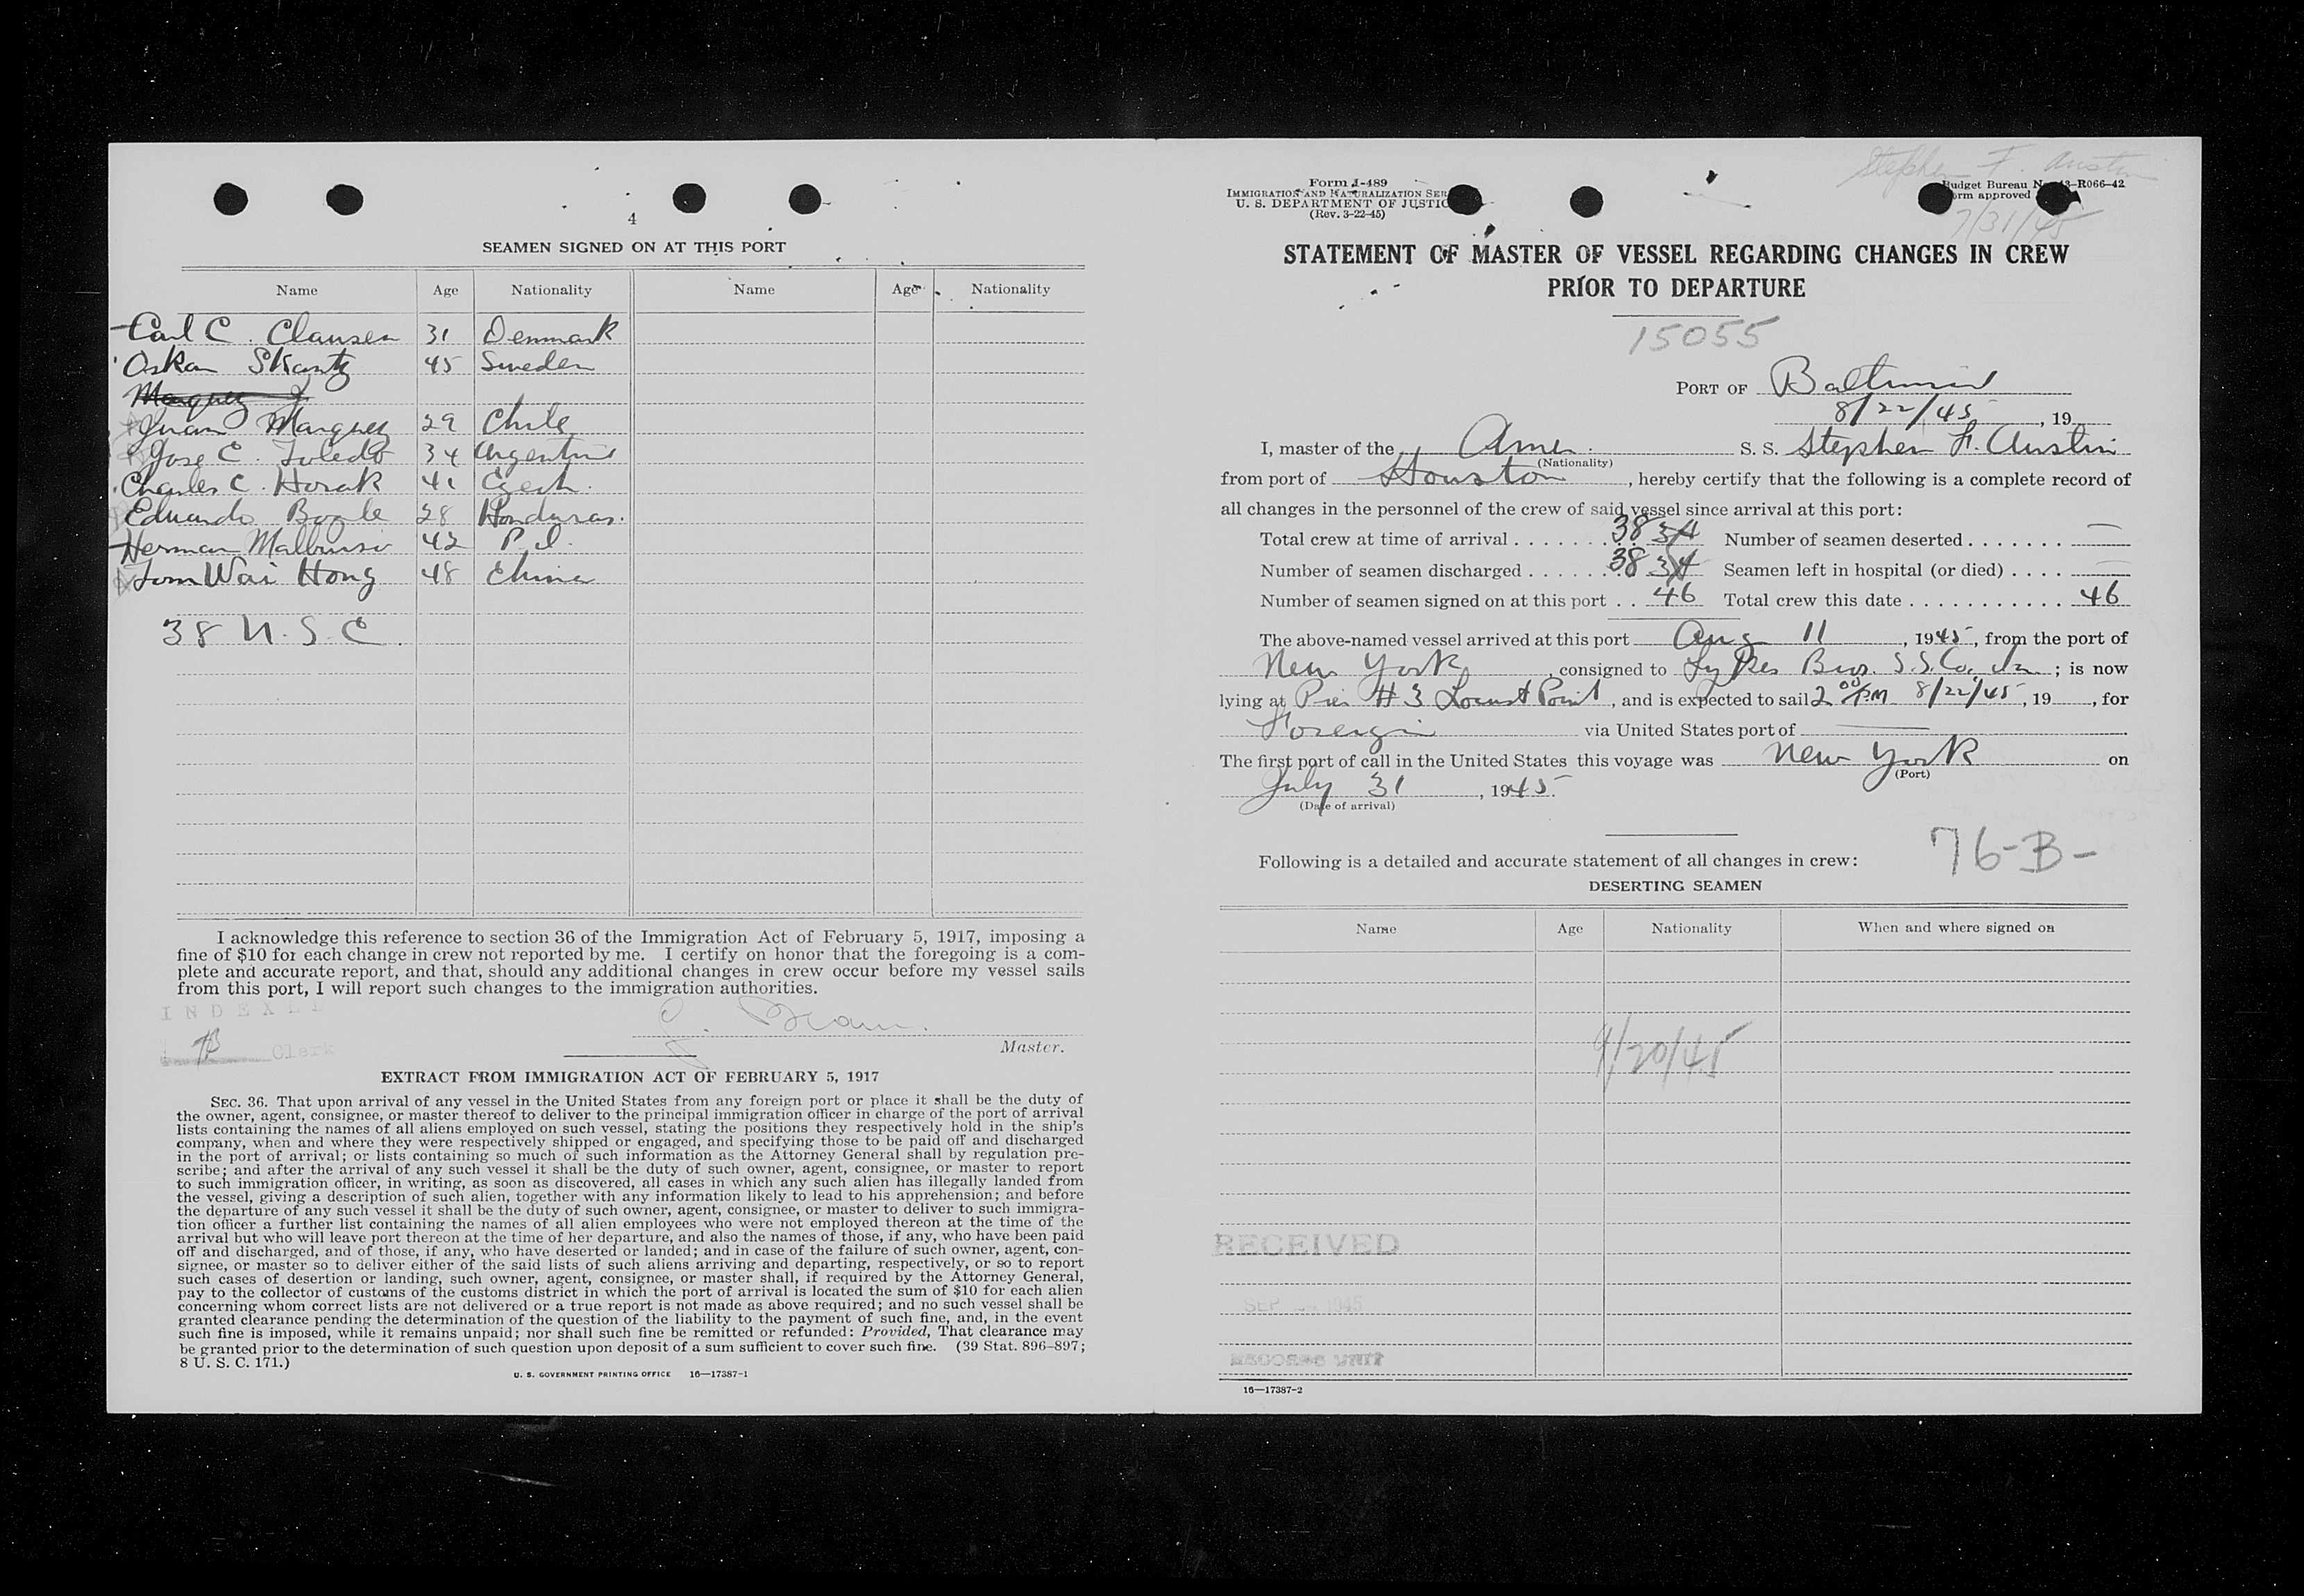 4
SEAMEN SIGNED ON AT THIS PORT
Name Age Nationality Name Age Nationality
Carl C. Clausen 31 Denmark
Oskar Skantz 45 Sweden
Marquez J
Juan Marquez 29 Chile
Jose C. Toledo 34 Argentina
Charles C. Horak 41 Czech.
Eduardo Bogle 28 Honduras.
Herman 42 P. I.
Tom Wai Hong 48 China
38 U.S.C.
I acknowledge this reference to section 36 of the Immigration Act of February 5, 1917, imposing a
fine of $10 for each change in crew not reported by me. I certify on honor that the foregoing is a com-
plete and accurate report, and that, should any additional changes in crew occur before my vessel sails
from this port, I will report such changes to the immigration authorities.
Clerk
Master.
EXTRACT FROM IMMIGRATION ACT OF FEBRUARY 5, 1917
SEC. 36. That upon arrival of any vessel in the United States from any foreign port or place it shall be the duty of
the owner, agent, consignee, or master thereof to deliver to the principal immigration officer in charge of the port of arrival
lists containing the names of all aliens employed on such vessel, stating the positions they respectively hold in the ship's
company, when and where they were respectively shipped or engaged, and specifying those to be paid off and discharged
in the port of arrival; or lists containing so much of such information as the Attorney General shall by regulation pre-
scribe; and after the arrival of any such vessel it shall be the duty of such owner, agent, consignee, or master to report
to such immigration officer, in writing, as soon as discovered, all cases in which any such alien has illegally landed from
the vessel, giving a description of such alien, together with any information likely to lead to his apprehension; and before
the departure of any such vessel it shall be the duty of such owner, agent, consignee, or master to deliver to such immigra-
tion officer a further list containing the names of all alien employees who were not employed thereon at the time of the
arrival but who will leave port thereon at the time of her departure, and also the names of those, if any, who have been paid
off and discharged, and of those, if any, who have deserted or landed; and in case of the failure of such owner, agent, con-
signee, or master so to deliver either of the said lists of such aliens arriving and departing, respectively, or so to report
such cases of desertion or landing, such owner, agent, consignee, or master shall, if required by the Attorney General,
pay to the collector of customs of the customs district in which the port of arrival is located the sum of $10 for each alien
concerning whom correct lists are not delivered or a true report is not made as above required; and no such vessel shall be
granted clearance pending the determination of the question of the liability to the payment of such fine, and, in the event
such fine is imposed, while it remains unpaid; nor shall such fine be remitted or refunded: Provided, That clearance may
be granted prior to the determination of such question upon deposit of a sum sufficient to cover such fine. (39 Stat. 896–897;
8 U. S. C. 171.)
U. S. GOVERNMENT PRINTING OFFICE 16—17387-1
Stephen F. Austin
Form I-489
IMMIGRATION AND NATURALIZATION SER
U. S. DEPARTMENT OF JUSTIC
(Rev. 3-22-45)
Budget Bureau N 43-R066-42
orm approved
7/31/45
STATEMENT OF MASTER OF VESSEL REGARDING CHANGES IN CREW
PRIOR TO DEPARTURE
15055
PORT OF Baltimore
8/22/45, 19
I, master of the Amer. S. S. Stephen F. Austin
(Nationality)
from port of Houston, hereby certify that the following is a complete record of
all changes in the personnel of the crew of said vessel since arrival at this port:
Total crew at time of arrival 38 34 Number of seamen deserted —
Number of seamen discharged 38 34 Seamen left in hospital (or died) —
Number of seamen signed on at this port 46 Total crew this date 46
The above-named vessel arrived at this port Aug 11, 1945, from the port of
New York, consigned to Lykes Bros. S.S. Co. In; is now
lying at Pier #3 Locust Point, and is expected to sail 2 00 PM 8/22/45, 19, for
Foreign via United States port of —
The first port of call in the United States this voyage was New York on
(Port)
July 31, 1945.
(Date of arrival)
76-B-
Following is a detailed and accurate statement of all changes in crew:
DESERTING SEAMEN
Name Age Nationality When and where signed on
9/20/45
RECEIVED
SEP 1945
RECORDS UNIT
16—17387-2